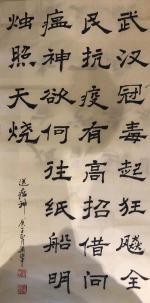 武汉冠毒起狂飚全
民抗疫有高招借问
瘟神欲何往纸船明
烛照天烧
送瘟神 庚子